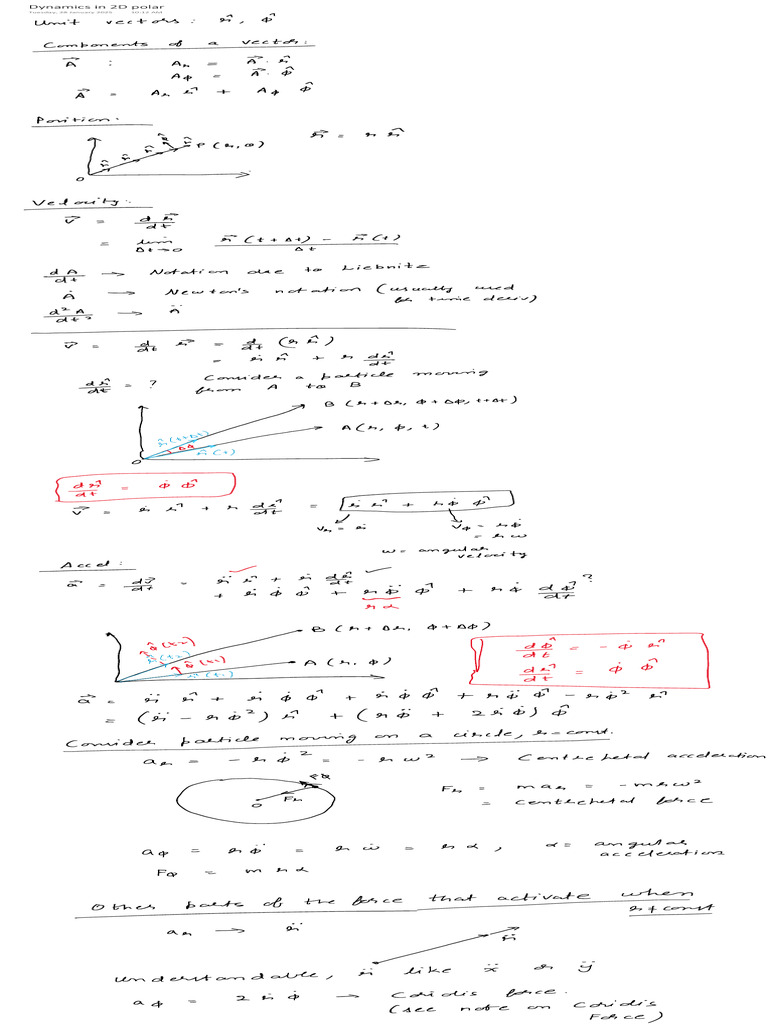 Dynamics in 2D polar
Tuesday, 28 January 2025 10:12 AM
Unit vectors: r̂, φ̂
Components of a vector:
A⃗ : Aᵣ = A⃗ · r̂
A_φ = A⃗ · φ̂
A⃗ = Aᵣ r̂ + A_φ φ̂
Position:
r⃗ = r r̂
φ̂ r̂ P (r, φ)
r̂ r̂ r̂
O
Velocity:
v⃗ = dr⃗/dt
= lim Δt→0 (r⃗(t+Δt) − r⃗(t))/Δt
dA/dt → Notation due to Liebnitz
Ȧ → Newton's notation (usually used
for time deriv)
d²A/dt² → Ä
v⃗ = d/dt r⃗ = d/dt (r r̂)
= ṙ r̂ + r dr̂/dt
dr̂/dt = ? Consider a particle moving
from A to B
B (r+Δr, φ+Δφ, t+Δt)
A (r, φ, t)
r̂(t+Δt)
Δφ r̂(t)
O
dr̂/dt = φ̇ φ̂
v⃗ = ṙ r̂ + r dr̂/dt = ṙ r̂ + rφ̇ φ̂
vᵣ = ṙ v_φ = rφ̇
= rω
ω = angular
velocity
Accel:
a⃗ = dv⃗/dt = r̈ r̂ + ṙ dr̂/dt
+ ṙ φ̇ φ̂ + rφ̈ φ̂ + rφ̇ dφ̂/dt ?
rα
B (r+Δr, φ+Δφ)
φ̂(t₂)
r̂(t₂) φ̂(t₁)
A (r, φ)
r̂(t₁)
dφ̂/dt = − φ̇ r̂
dr̂/dt = φ̇ φ̂
a⃗ = r̈ r̂ + ṙ φ̇ φ̂ + ṙ φ̇ φ̂ + rφ̈ φ̂ − rφ̇² r̂
= (r̈ − rφ̇²) r̂ + (rφ̈ + 2ṙφ̇) φ̂
Consider particle moving on a circle, r=const.
aᵣ = − rφ̇² = − rω² → Centripetal acceleration
F_φ
Fᵣ
O
Fᵣ = maᵣ = −mrω²
= centripetal force
a_φ = rφ̈ = rω̇ = rα, α = angular
acceleration
F_φ = mrα
Other parts of the force that activate when
r ≠ const
aᵣ → r̈
r̈
Understandable, r̈ like ẍ or ÿ
a_φ = 2ṙφ̇ → Coriolis force.
(see note on Coriolis
Force)